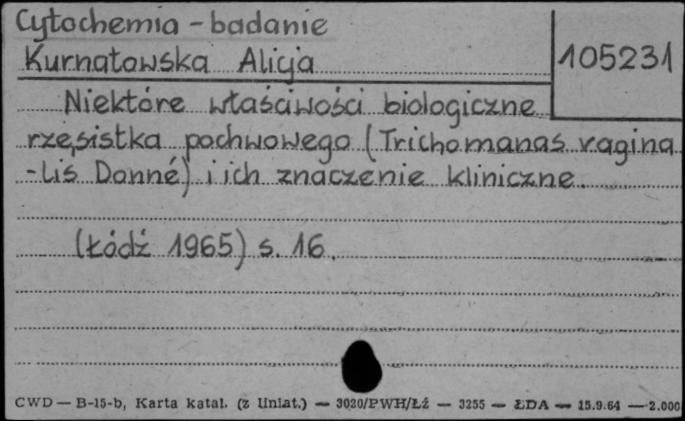 Cytochemia - badanie
Kurnatowska Alicja
105231
Niektóre właściwości biologiczne
rzęsistka pochwowego (Trichomanas vagina
-lis Donné) i ich znaczenie kliniczne.
(Łódź 1965) s. 16.
CWD — B-15-b, Karta katal. (z Uniat.) — 3020/PWH/Łź — 3255 — ŁDA — 15.9.64 — 2.000